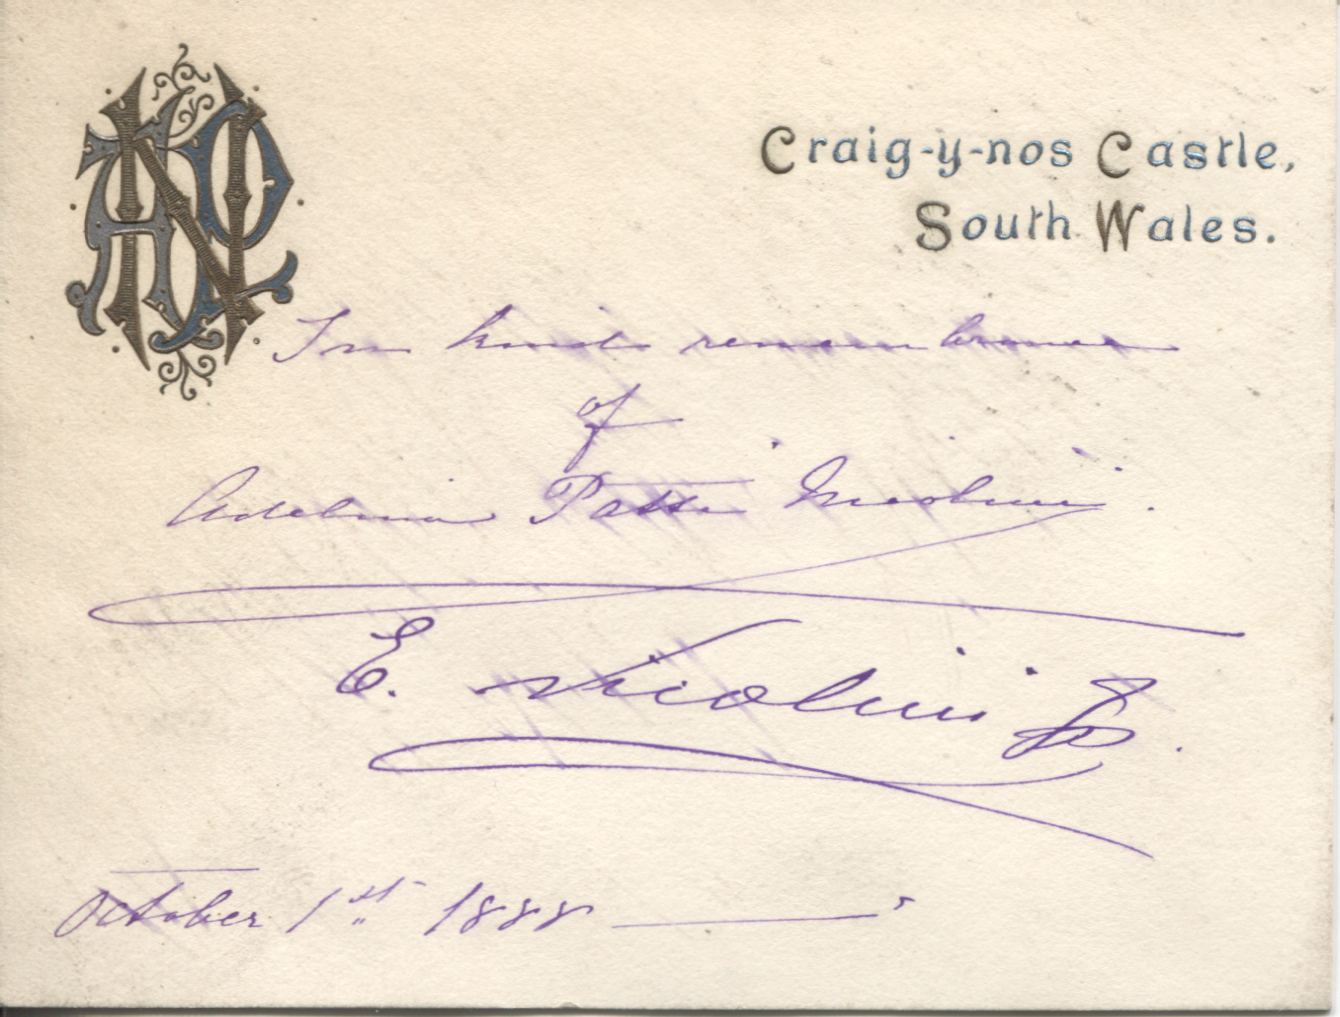 Craig-y-nos Castle,
South Wales.
In kind remembrance
of
Adelina Patti Nicolini.
E. Nicolini
October 1st 1888